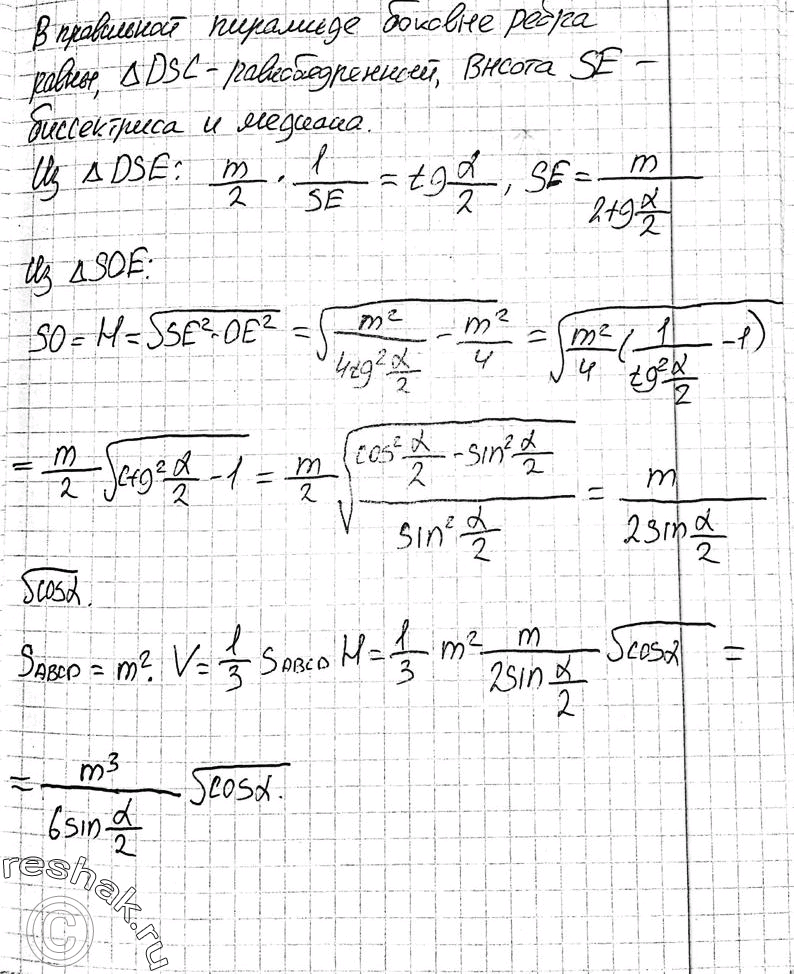 В правильной пирамиде боковые ребра
равны, △DSC - равнобедренный, высота SE -
биссектриса и медиана.
Из △DSE: m/2 · 1/SE = tg α/2, SE = m/(2tg α/2)
Из △SOE:
SO = H = √(SE² - OE²) = √(m²/(4tg² α/2) - m²/4) = √(m²/4 (1/(tg² α/2) - 1))
= m/2 √(ctg² α/2 - 1) = m/2 √((cos² α/2 - sin² α/2)/(sin² α/2)) = m/(2sin α/2)
√cosα.
S_ABCD = m². V = 1/3 S_ABCD H = 1/3 m² m/(2sin α/2) √cosα =
= m³/(6sin α/2) √cosα.
reshak.ru
©